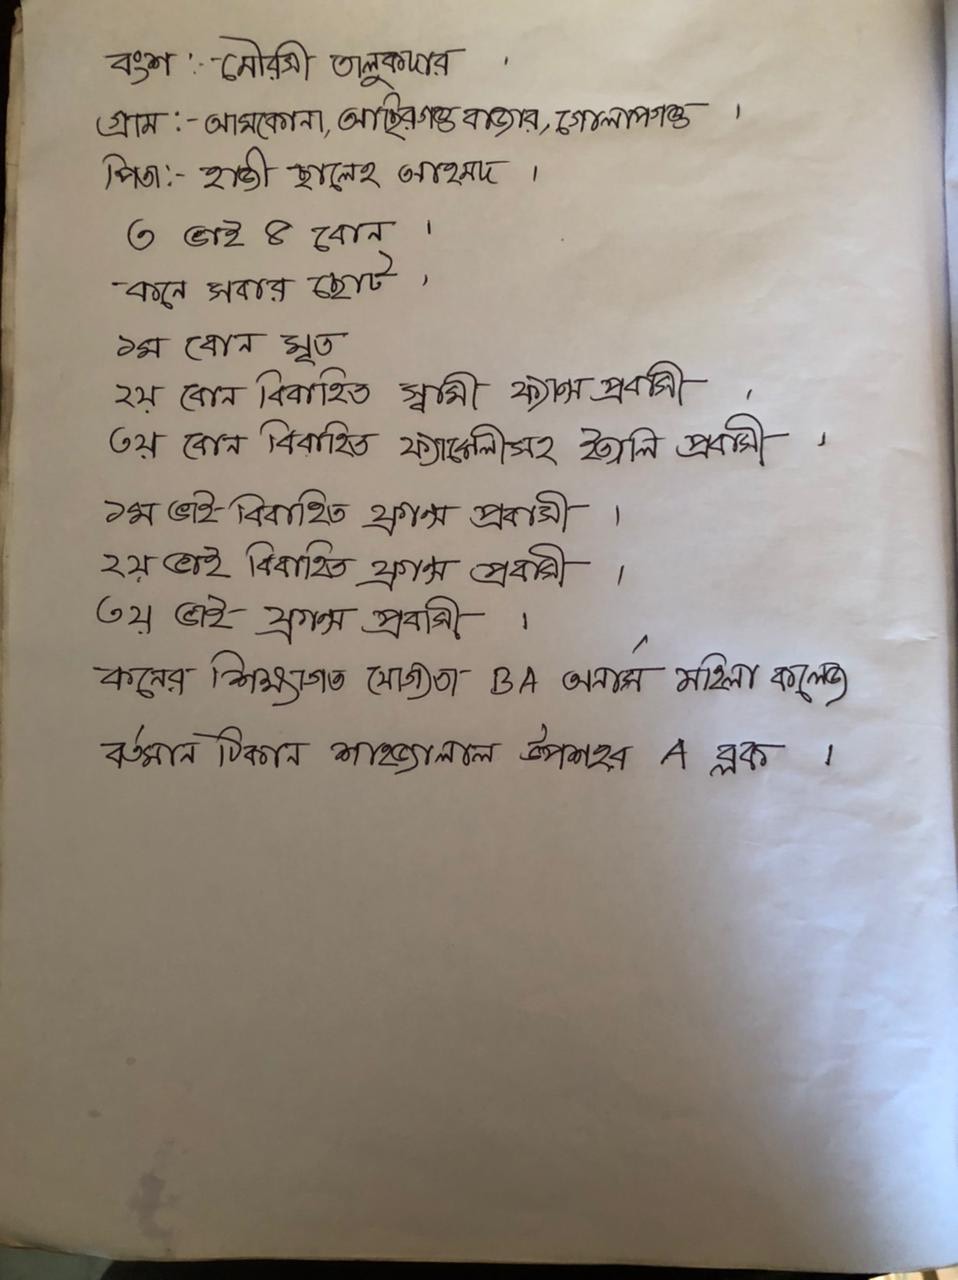 বংশ :- মৌরসী তালুকদার ।
গ্রাম :- আমকোনা, আছিরগঞ্জ বাজার, গোলাপগঞ্জ ।
পিতা :- হাজী ছালেহ আহমদ ।
৩ ভাই ৪ বোন ।
কনে সবার ছোট ।
১ম বোন মৃত
২য় বোন বিবাহিত স্বামী ফ্যান্স প্রবাসী ।
৩য় বোন বিবাহিত ফ্যামেলীসহ ইতালি প্রবাসী ।
১ম ভাই বিবাহিত ফ্রান্স প্রবাসী ।
২য় ভাই বিবাহিত ফ্রান্স প্রবাসী ।
৩য় ভাই ফ্রান্স প্রবাসী ।
কনের শিক্ষাগত যোগ্যতা BA অনার্স মহিলা কলেজ
বর্তমান ঠিকানা শাহজালাল উপশহর A ব্লক ।